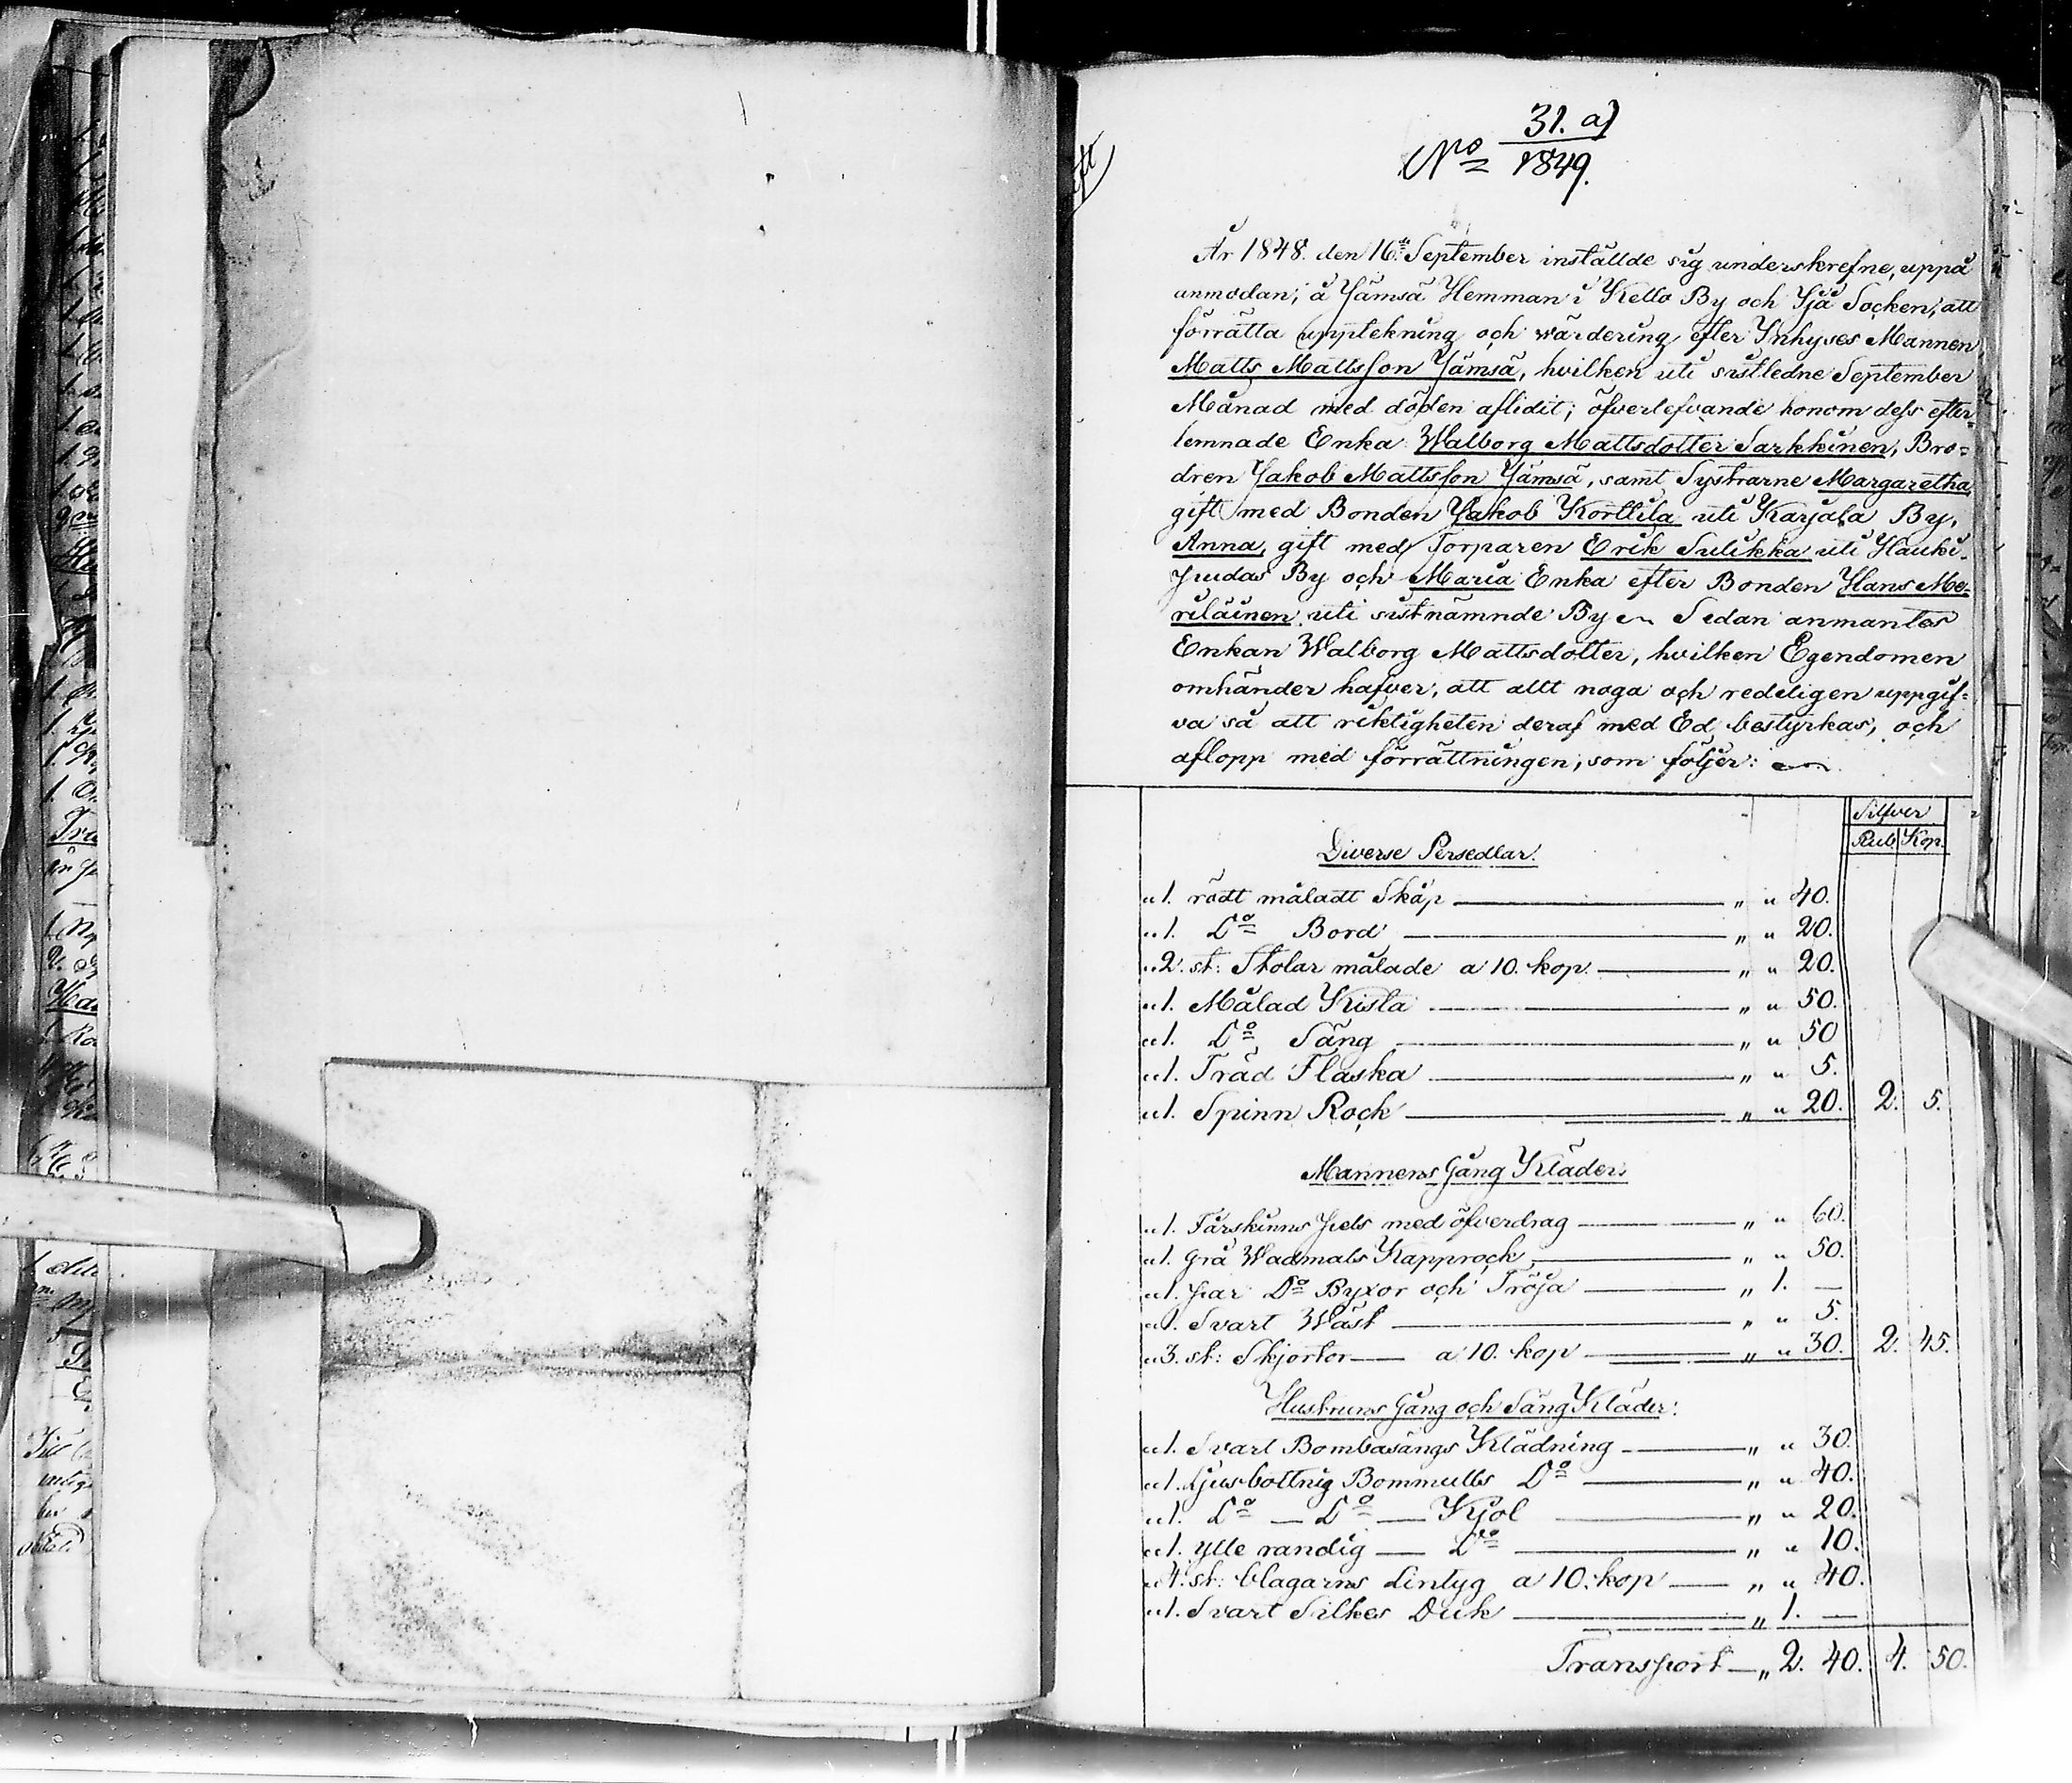 31. a)
No 1849.
År 1848. den 16de September inställde sig underskrefne, uppå
anmodan, å Jämsä Hemman i Kello By och Ijå Socken, att
förrätta uppteckning och wärdering efter Inhyses Mannen
Matts Mattsson Jämsä, hvilken uti sistledne September
Månad med döden aflidit; öfverlefvande honom dess efter=
lemnade Enka Walborg Mattsdotter Sarkkinen, Bro=
dren Jakob Mattsson Jämsä, samt Systrarne Margaretha,
gift med Bonden Jakob Korttila uti Karjala By,
Anna, gift med Torparen Erik Sulikka uti Hauki-
pudas By och Maria Enka efter Bonden Hans Me=
riläinen uti sistnämnde By Sedan anmantes
Enkan Walborg Mattsdotter, hvilken Egendomen
omhänder hafver, att allt noga och redeligen uppgif=
va så att riktigheten deraf med Ed bestyrkas, och
aflopp med förrättningen, som följer:
Silfver
Rub Kop.
Diverse Persedlar.
1. rödt måladt Skåp „ „ 40.
1. Do Bord „ „ 20.
2. st: Stolar målade a 10. kop. „ „ 20.
1. Målad Kista „ „ 50.
1. Do Säng „ „ 50
1. Träd Flaska „ „ 5.
1. Spinn Rock „ „ 20. 2. 5.
Mannens Gång Kläder.
1. Fårskinns Pels med öfverdrag „ „ 60.
1. Grå Wadmals Kapprock „ „ 50.
1. par Do Byxor och Tröja „ 1. —
1. Svart Wäst „ „ 5.
3. st: Skjortor — a 10. kop „ „ 30. 2. 45.
Hustruns Gång och Säng Kläder:
1. Svart Bombasängs Klädning „ „ 30.
1. Ljusbottnig Bommulls Do „ „ 40.
1. Do — Do — Kjol „ „ 20.
1. ylle randig — Do „ „ 10.
4. st: blagarns Lintyg a 10. kop — „ „ 40.
1. Svart Silkes Duk „ 1. —
Transport — „ 2. 40. 4. 50.